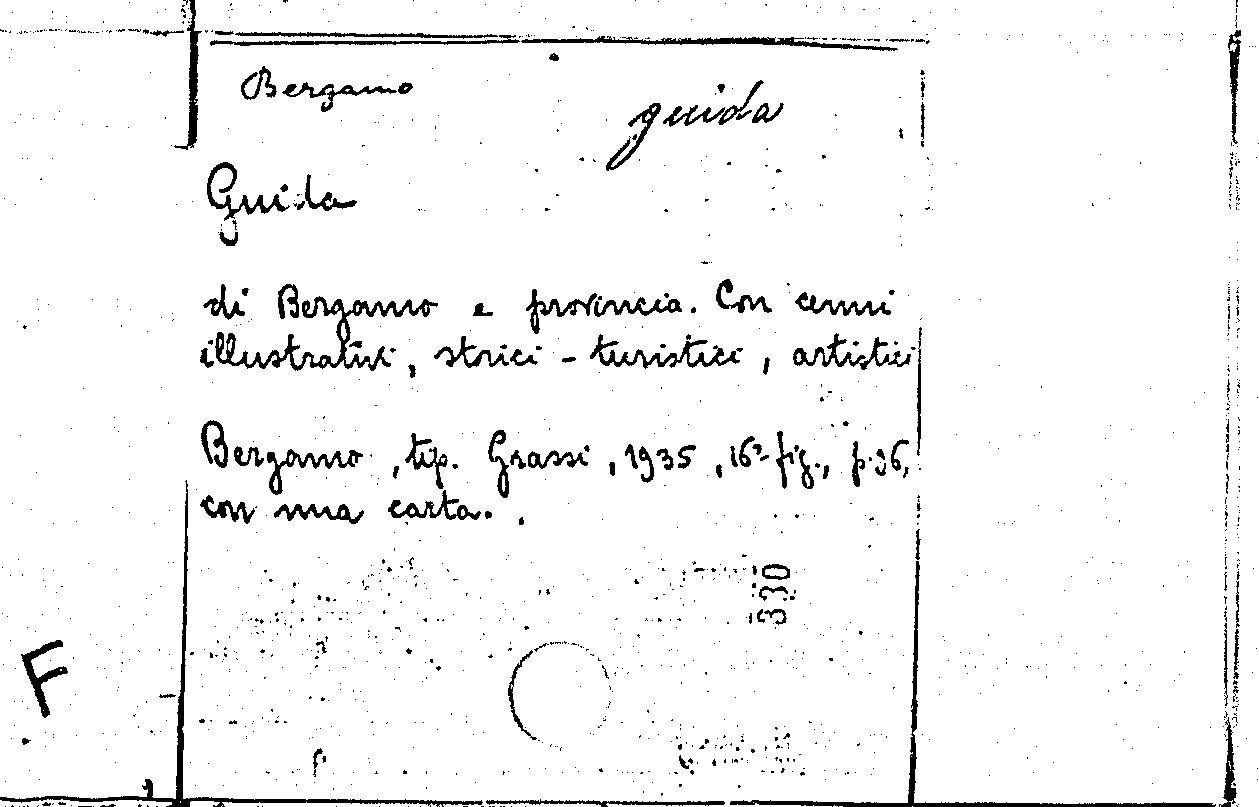 Bergamo
guida
Guida
di Bergamo e provincia. Con cenni
illustrativi, storici - turistici, artistici
Bergamo, tip. Grassi, 1935, 16º fig., p. 96,
con una carta.
330
F